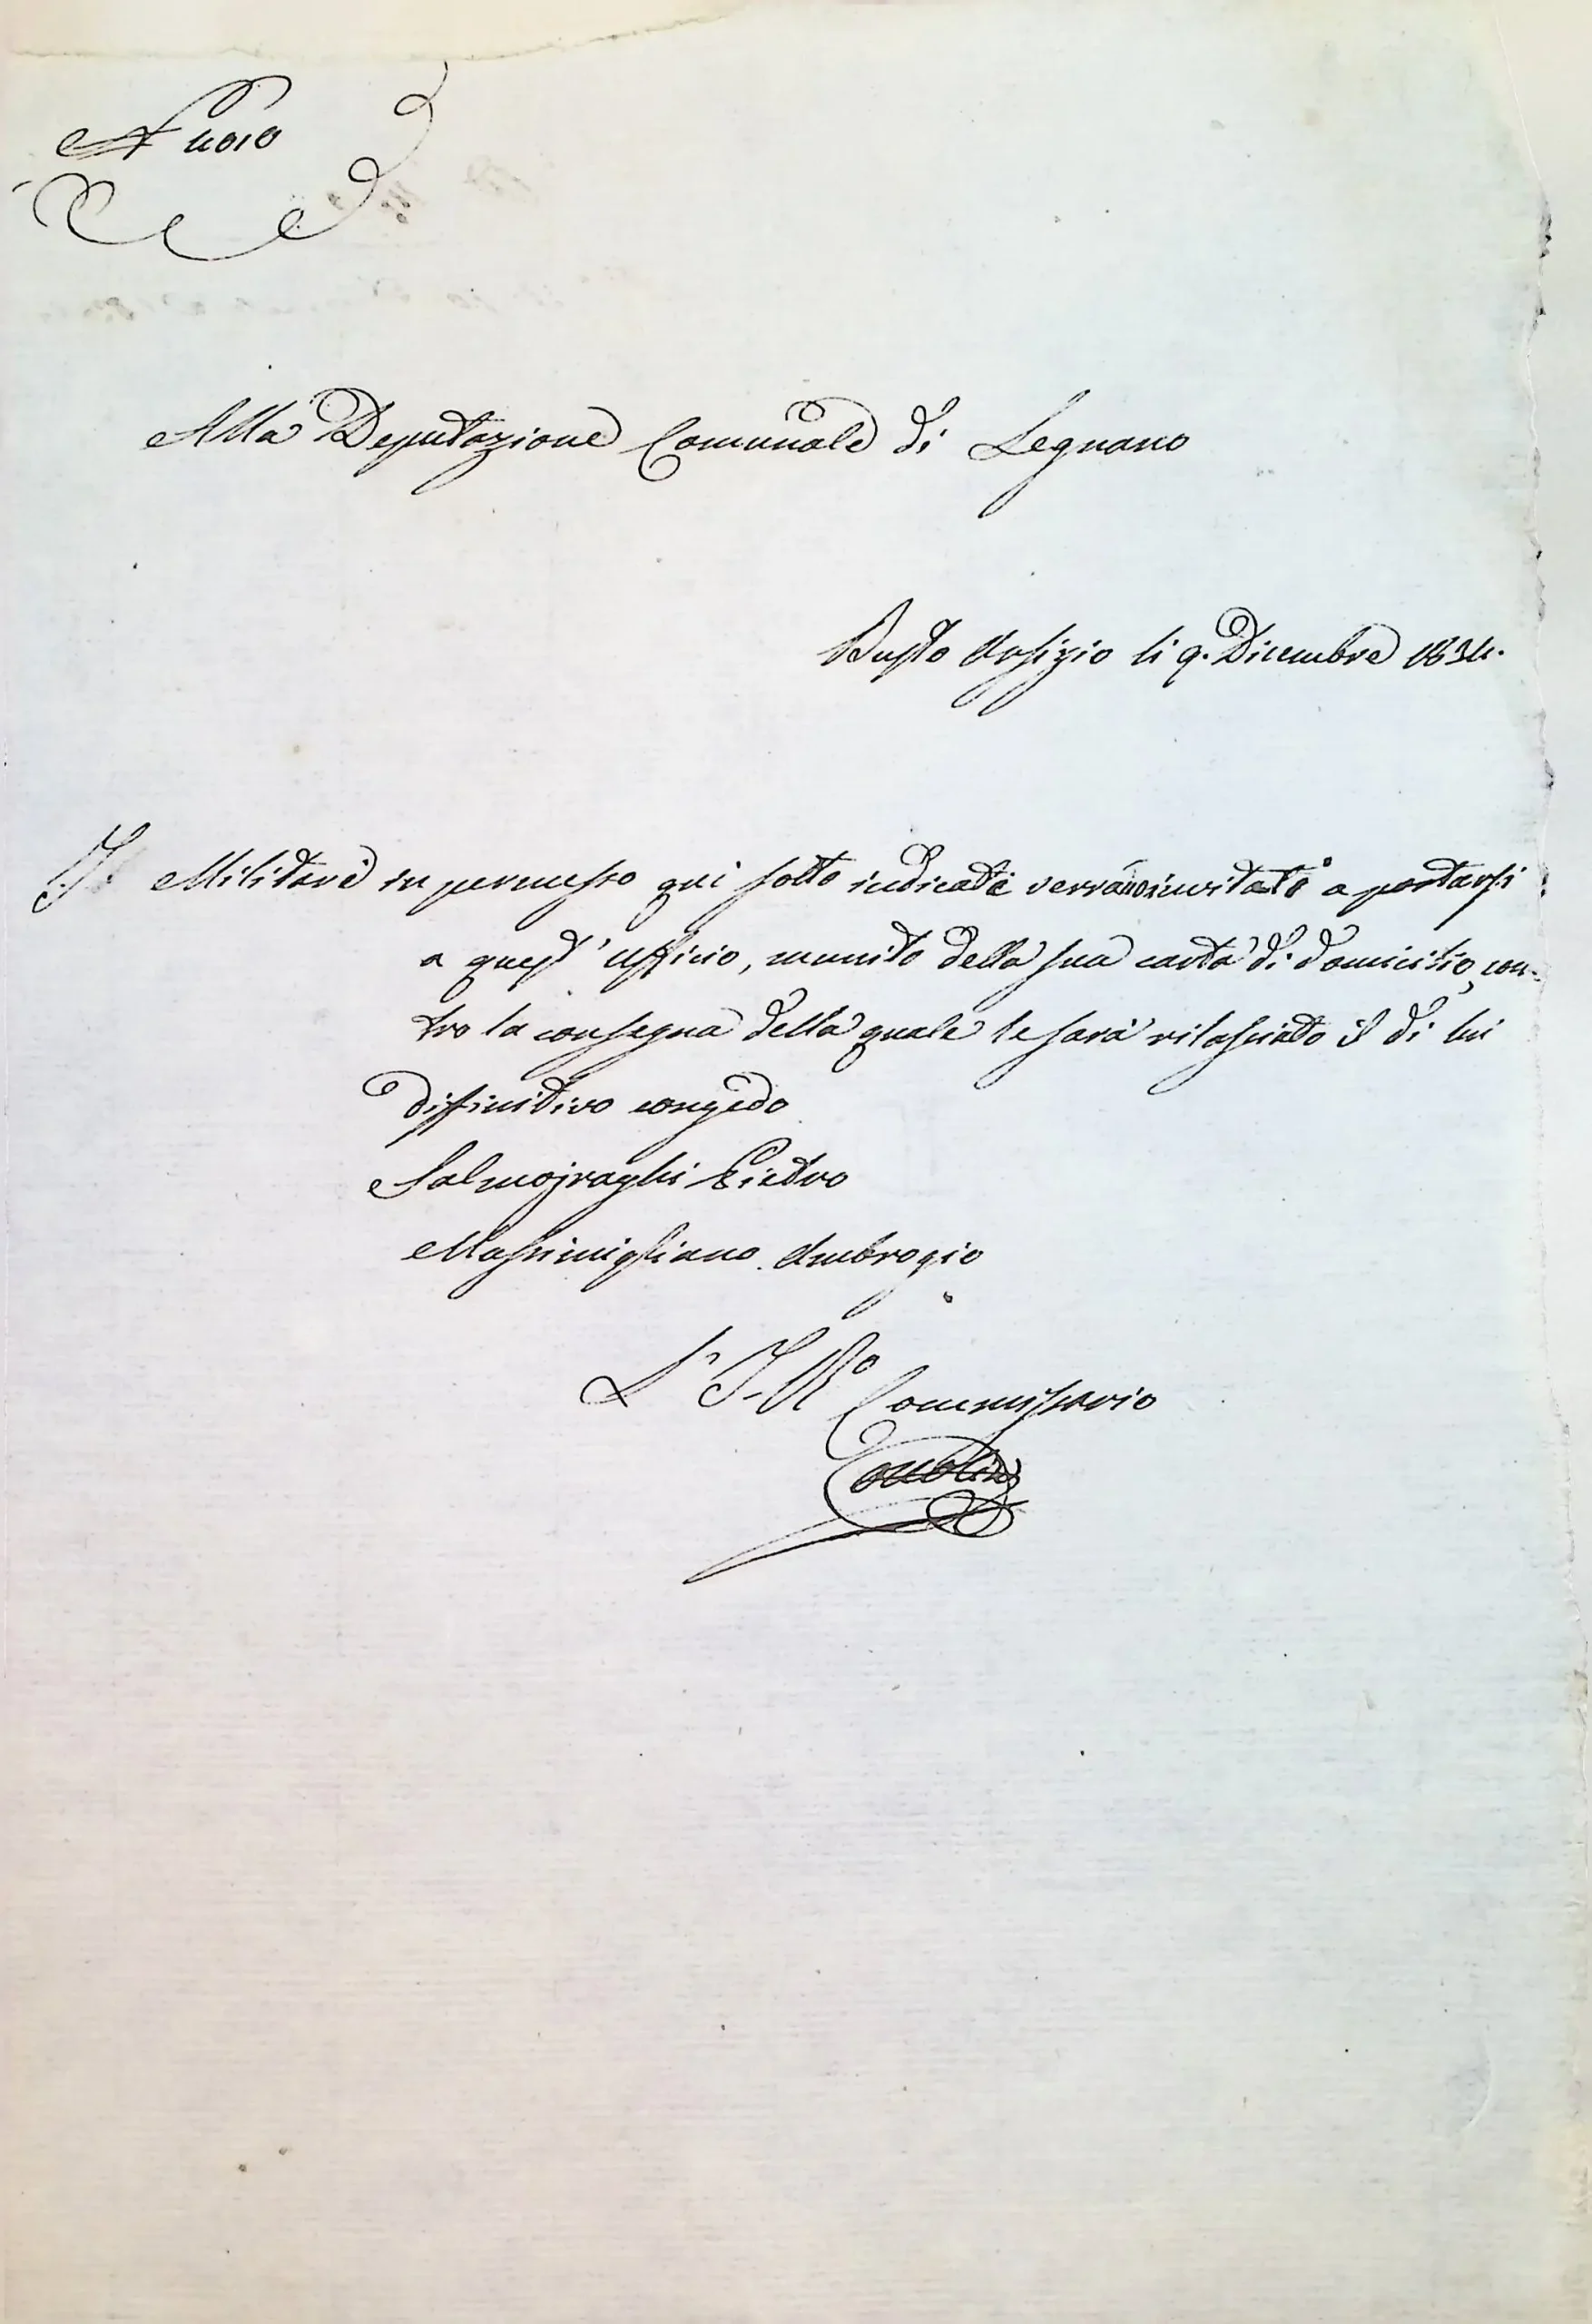 N 4010
Alla Deputazione Comunale di Legnano
Busto Arsizio li 9. Dicembre 1834.
I Militari in permesso qui sotto indicati verranno invitati a portarsi
a quest' Ufficio, munito della sua carta di domicilio, con-
tro la consegna della quale le sarà rilasciato il di lui
diffinitivo congedo
Salmojraghi Pietro
Massimigliano Ambrogio
L' I. R.º Commissario